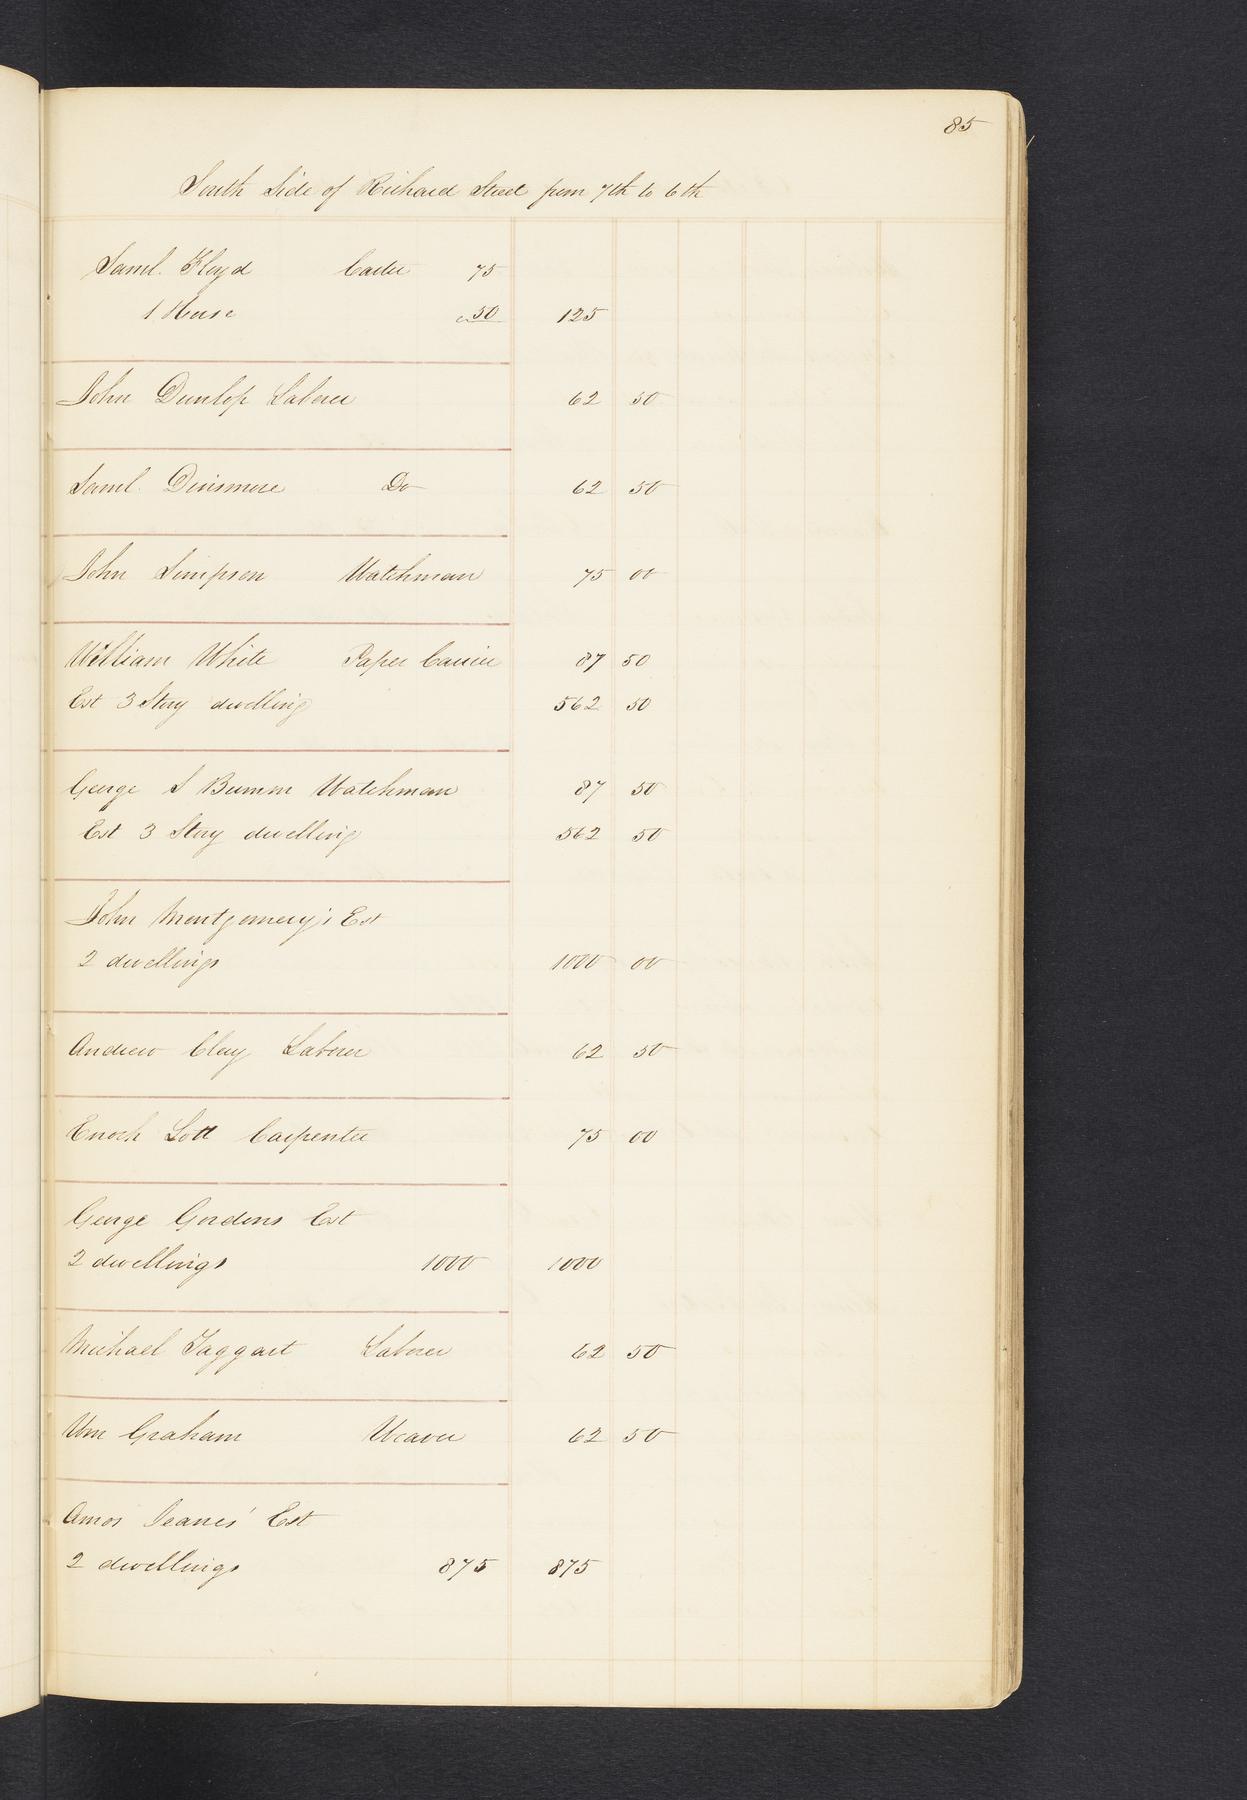 85
South Side of Richard Street from 7th to 6th
Saml. Floyd Carter 75
1 Horse 50 125
John Dunlop Laborer 62 50
Saml. Dinsmore Do 62 50
John Simpson Watchman 75 00
William White Paper Carrier 87 50
Est 3 Story dwelling 562 50
George S Bumm Watchman 87 50
Est 3 Story dwelling 562 50
John Montgomery's Est
2 dwellings 1000 00
Andrew Clay Laborer 62 50
Enoch Lott Carpenter 75 00
George Gordons Est
2 dwellings 1000 1000
Michael Taggart Laborer 62 50
Wm Graham Weaver 62 50
Amos Jeanes' Est
2 dwellings 875 875